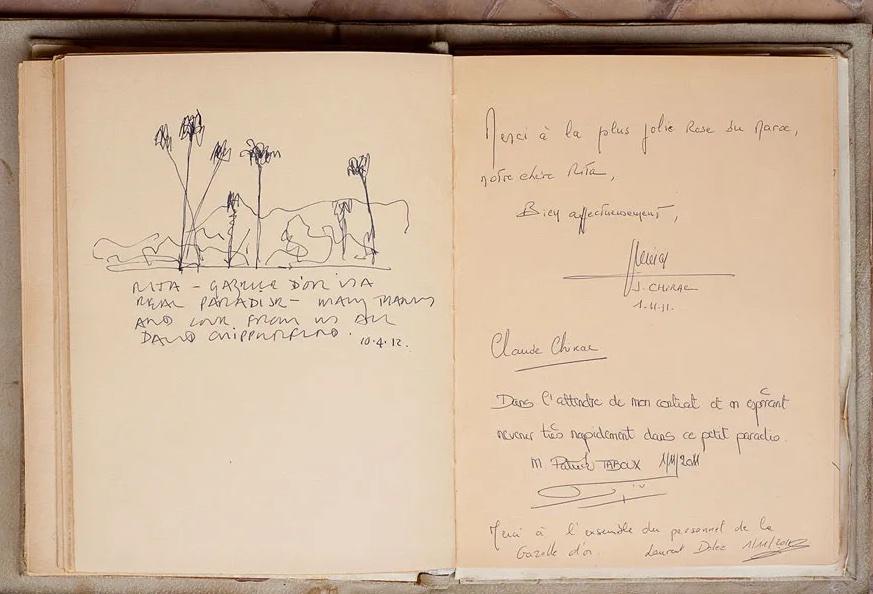 RITA – GAZELLE D'OR IS A
REAL PARADISE – MANY THANKS
AND LOVE FROM US ALL
DAVID CHIPPERFIELD.
10.4.12.
Merci à la plus jolie Rose du Maroc,
notre chère Rita,
Bien affectueusement,
J. CHIRAC
1.11.11.
Claude Chirac
Dans l'attendre de mon contrat et en espérant
revenir très rapidement dans ce petit paradis.
M Patrick TABOUX 1/11/2011
Merci à l'ensemble du personnel de la
Gazelle d'or. Laurent